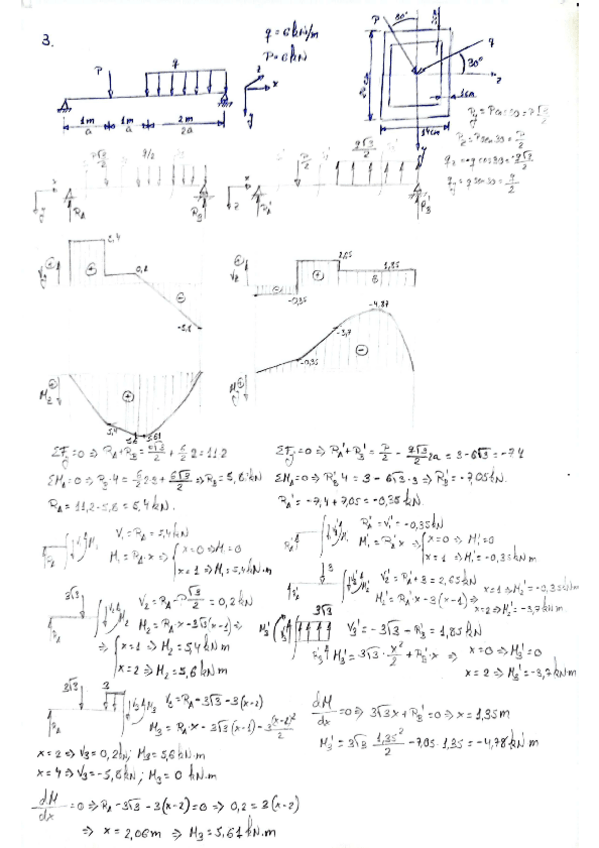 3.
q = 6 kN/m
P = 6 kN
P
q
x
z
y
1m
a
1m
a
2m
2a
P
30°
q
30°
z
1cm
14cm
y
Py = P cos 30 = P√3/2
Pz = P sen 30 = P/2
qz = -q cos 30 = -q√3/2
qy = q sen 30 = q/2
P√3/2
q/2
RA
RB
P/2
q√3/2
RA'
RB'
Vy
5,4
0,2
-5,8
Vz
-0,35
2,65
1,85
Mz
5,4
5,6
5,61
My
-0,35
-3,7
-4,87
ΣFy=0 ⇒ RA+RB = 6√3/2 + 6/2 2 = 11.2
ΣMA=0 ⇒ RB·4 = 6/2 2·3 + 6√3/2 ⇒ RB = 5,8 kN
RA = 11,2-5,8 = 5,4 kN.
ΣFz=0 ⇒ RA'+RB' = P/2 - q√3/2 2a = 3-6√3 = -7.4
ΣMA=0 ⇒ RB' 4 = 3 - 6√3·3 ⇒ RB' = -7,05 kN.
RA' = -7,4+7,05 = -0,35 kN.
V1 = RA = 5,4 kN
M1 = RA·x ⇒ x=0 ⇒ M1=0
x=1 ⇒ M1=5,4 kN m
RA' = V1' = -0,35 kN
M1' = RA' x ⇒ x=0 ⇒ M1'=0
x=1 ⇒ M1'=-0,35 kN m
3√3
V2 = RA - 6√3/2 = 0,2 kN
M2 = RA·x - 3√3(x-1) ⇒
⇒ x=1 ⇒ M2 = 5,4 kN m
x=2 ⇒ M2 = 5,6 kN m
3
V2' = RA'+3 = 2,65 kN
M2' = RA'x - 3(x-1) ⇒
x=1 ⇒ M2' = -0,35 kN m
x=2 ⇒ M2' = -3,7 kN m
3√3
V3' = -3√3 - RB' = 1,85 kN
M3' = 3√3·x²/2 + RB'·x ⇒ x=0 ⇒ M3'=0
x=2 ⇒ M3' = -3,7 kN m
3√3
3
V3 = RA - 3√3 - 3(x-2)
M3 = RA·x - 3√3(x-1) - 3(x-2)²/2
x=2 ⇒ V3 = 0,2 kN; M3 = 5,6 kN·m
x=4 ⇒ V3 = -5,8 kN; M3 = 0 kN·m
dM/dx = 0 ⇒ RA - 3√3 - 3(x-2) = 0 ⇒ 0,2 = 3(x-2)
⇒ x = 2,06 m ⇒ M3 = 5,61 kN.m
dM/dx = 0 ⇒ 3√3 x + RB' = 0 ⇒ x = 1,35 m
M3' = 3√3 · 1,35²/2 - 7,05·1,35 = -4,78 kN.m